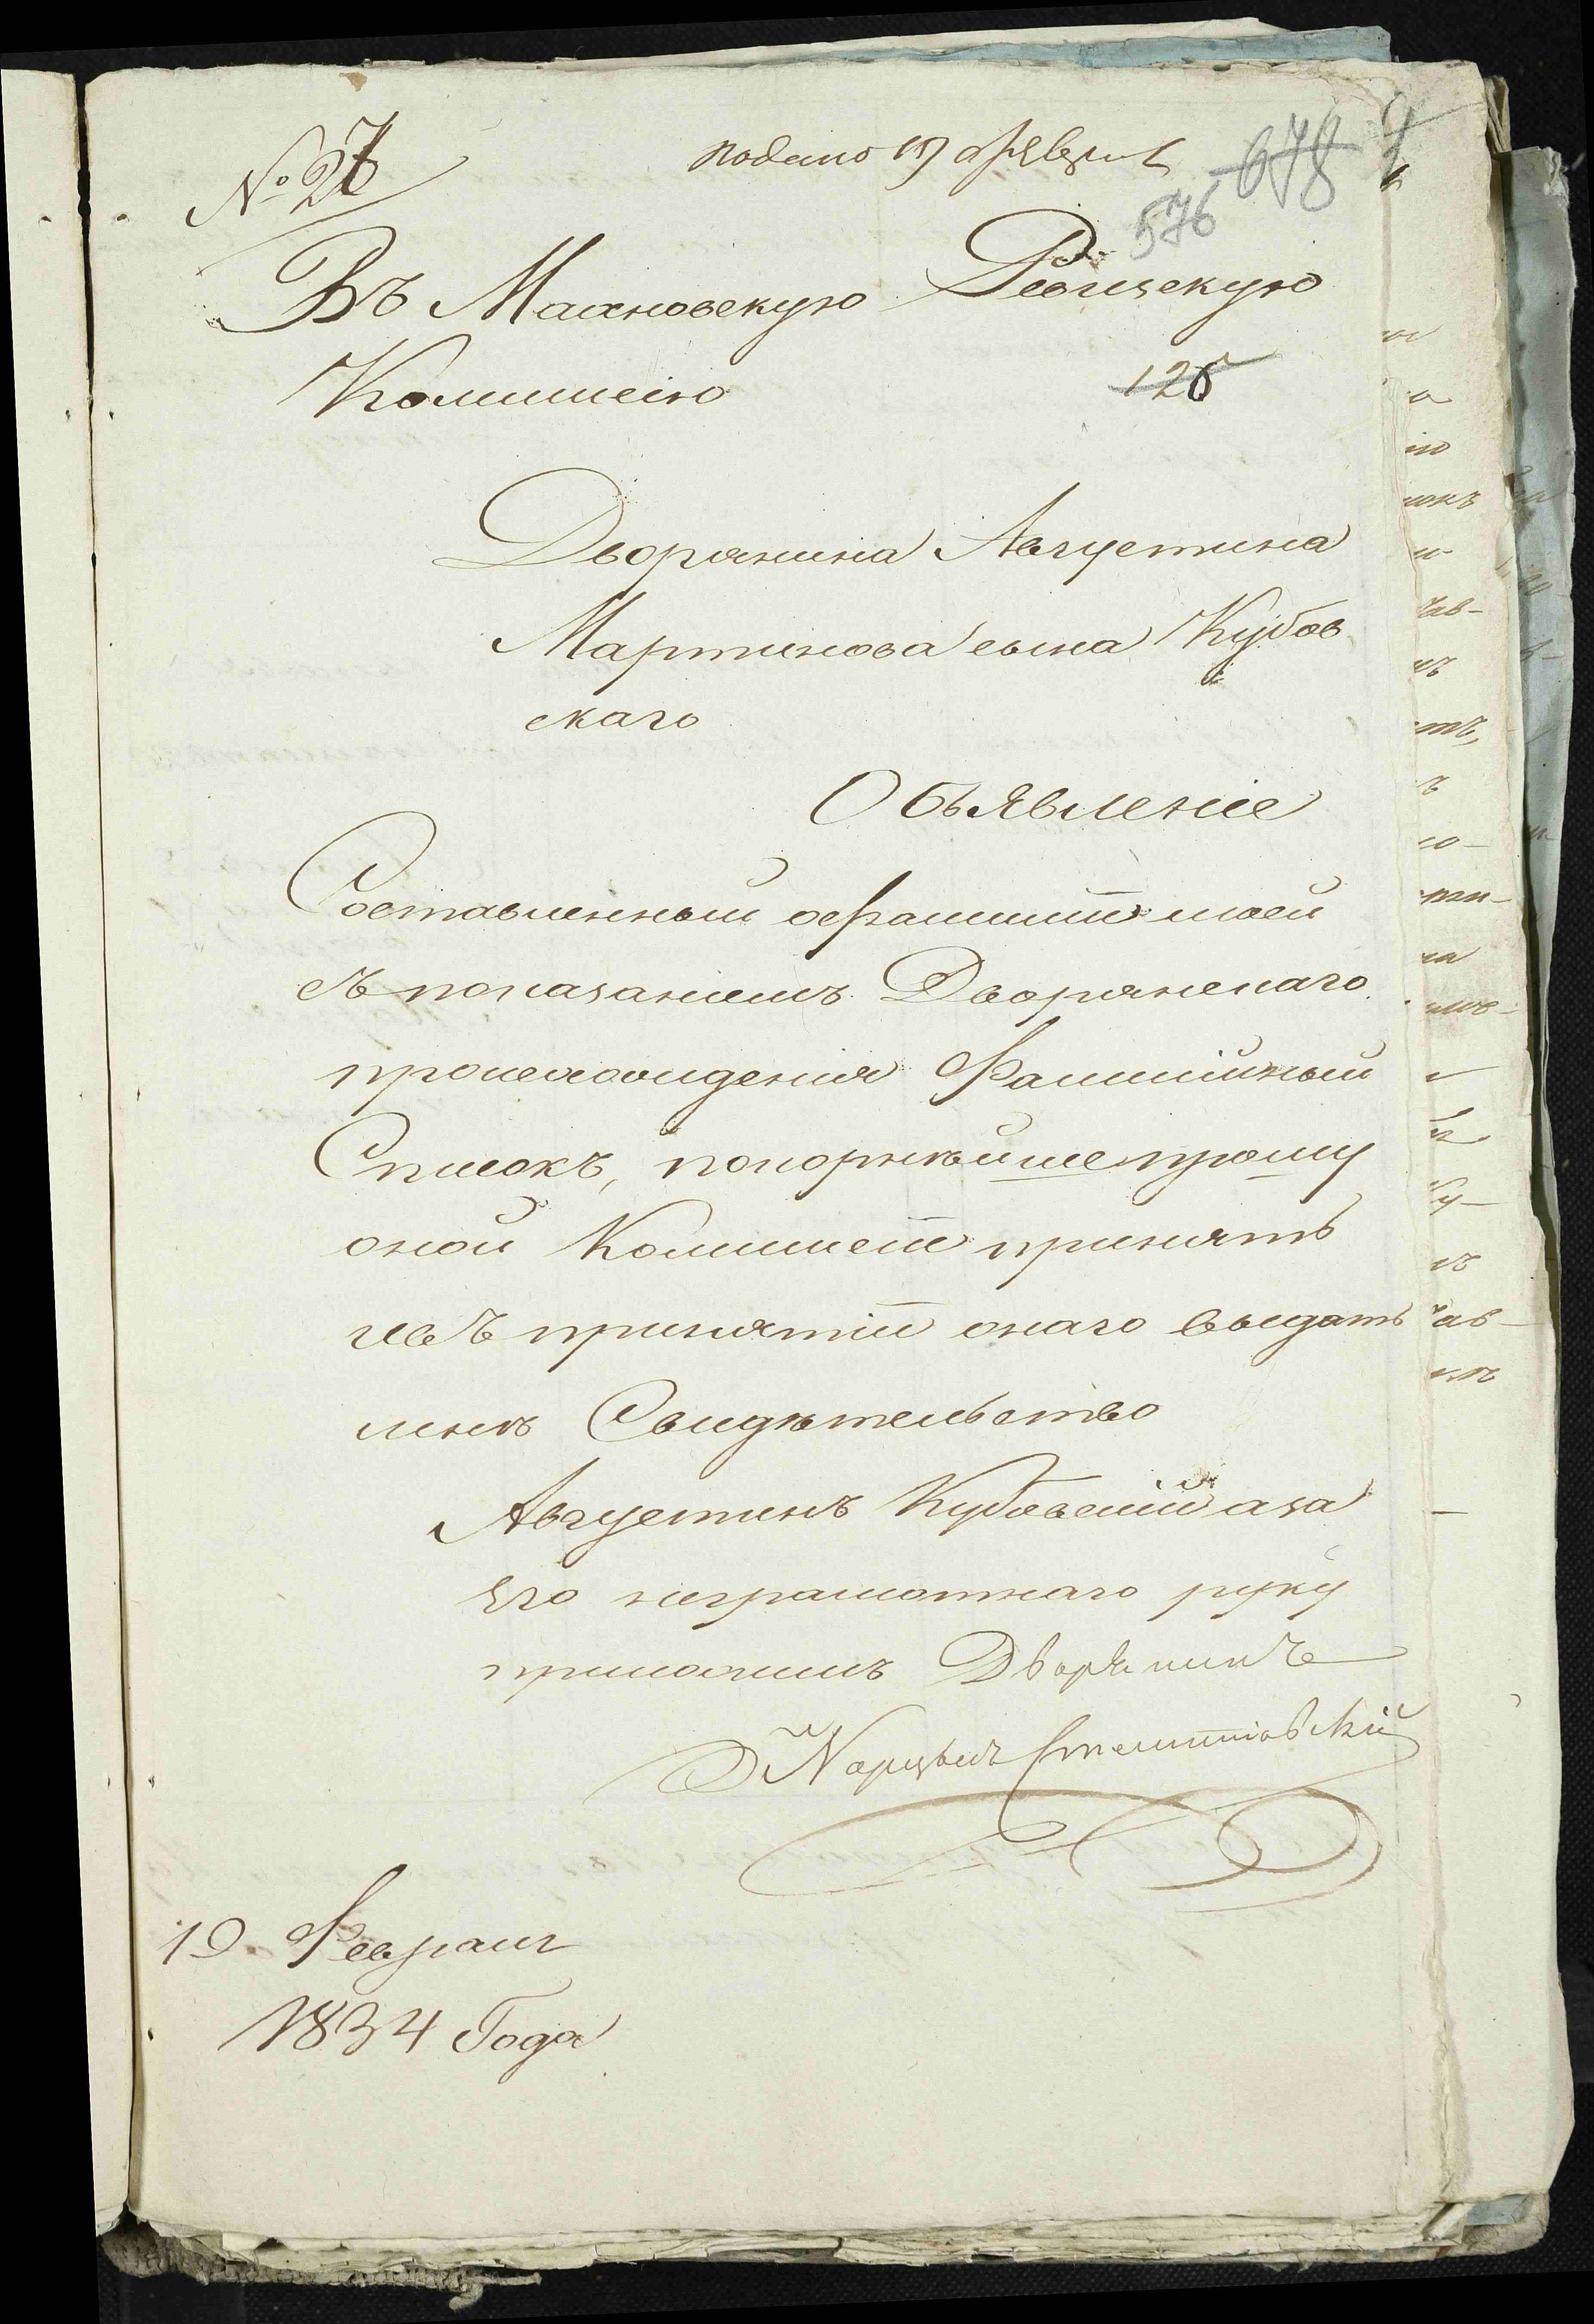 № 27
подано 19 февраля
678
576
Въ Махновскую Ревизскую
Коммисію
126
Дворянина Августина
Мартинова сына Кубов
скаго
Объявленіе
Составленный о фамиліи моей
съ показаніемъ Дворянскаго
происхожденія Фамилійный
Списокъ, покорнѣйше прошу
оной Коммисіи принять
и въ принятіи онаго выдать
мнѣ Свидѣтельство
Августинъ Кубовскій а за
его неграмотнаго руку
приложилъ Дворянинъ
19 Февраля
1834 Года